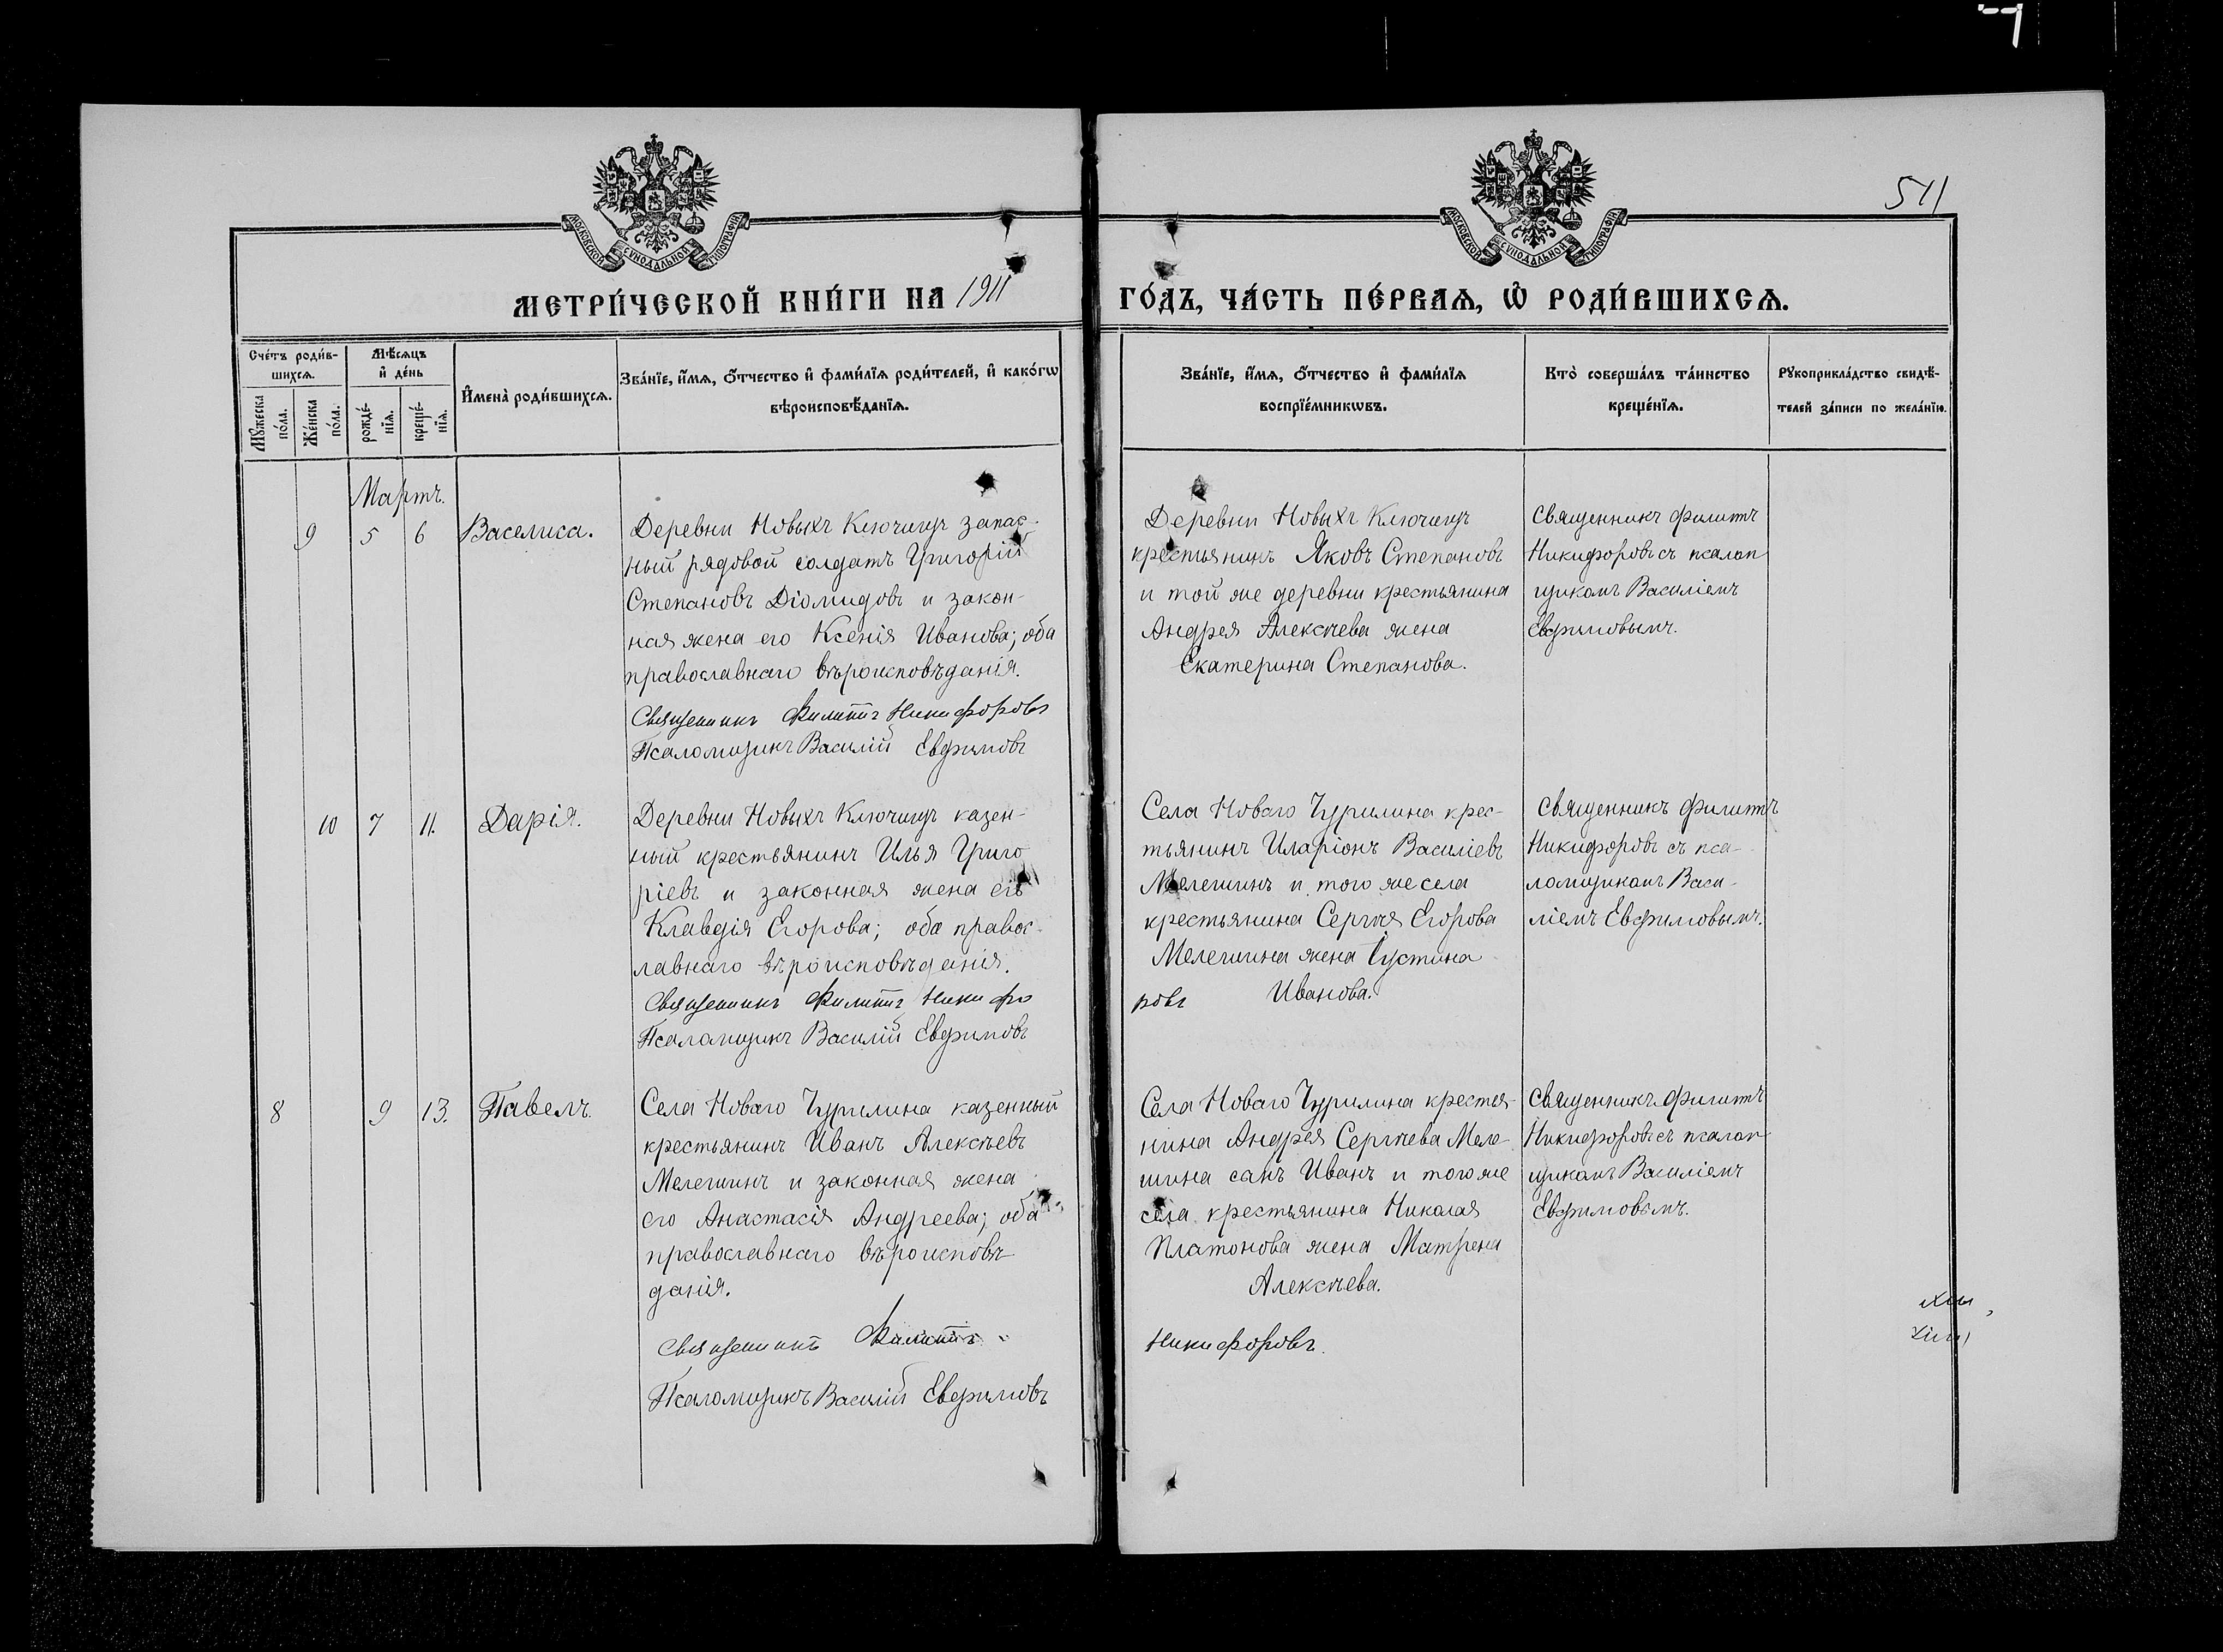 511
МОСКОВСКОЙ СѴНОДАЛЬНОЙ ТИПОГРАФІИ
МОСКОВСКОЙ СѴНОДАЛЬНОЙ ТИПОГРАФІИ
МЕТРИ́ЧЕСКОЙ КНИ́ГИ НА 1911
ГО́ДЪ, ЧА́СТЬ ПЕ́РВАѦ, Ѡ҆ РОДИ́ВШИХСѦ.
Сче́тъ роди́в-
шихсѧ.
Мѣ́сѧцъ
и҆ де́нь
Мꙋ́жеска
по́ла.
Же́нска
по́ла.
рожде́-
нїѧ.
креще́-
нїѧ.
И҆мена̀ роди́вшихсѧ.
Зва́нїе, и҆́мѧ, ѻ҆́тчество и҆ фами́лїѧ роди́телей, и҆ како́гѡ
вѣроисповѣ́данїѧ.
Зва́нїе, и҆́мѧ, ѻ҆́тчество и҆ фами́лїѧ
воспрїе́мникѡвъ.
Кто̀ соверша́лъ та́инство
креще́нїѧ.
Рꙋкоприкла́дство свидѣ́-
телей за́писи по жела́нїю.
Мартъ.
9 5 6 Василиса.
Деревни Новыхъ Ключищъ запас-
ный рядовой солдатъ Григорій
Степановъ Діомидовъ и закон-
ная жена его Ксенія Иванова; оба
православнаго вѣроисповѣданія.
Священникъ Филиппъ Никифоровъ
Псаломщикъ Василій Евфимовъ
Деревни Новыхъ Ключищъ
крестьянинъ Яковъ Степановъ
и той же деревни крестьянина
Андрея Алексѣева жена
Екатерина Степанова.
Священникъ Филиппъ
Никифоровъ съ псалом
щикомъ Василіемъ
Евфимовымъ.
10 7 11. Дарія.
Деревни Новыхъ Ключищъ казен-
ный крестьянинъ Илья Григо
ріевъ и законная жена его
Клавдія Егорова; оба правос-
лавнаго вѣроисповѣданія.
Священникъ Филиппъ Никифо
ровъ
Псаломщикъ Василій Евфимовъ
Села Новаго Чурилина крес-
тьянинъ Иларіонъ Василіевъ
Мелешинъ и того же села
крестьянина Сергѣя Егорова
Мелешина жена Іустина
Иванова.
Священникъ Филиппъ
Никифоровъ съ пса-
ломщикомъ Васи-
ліемъ Евфимовымъ.
8 9 13. Павелъ.
Села Новаго Чурилина казенный
крестьянинъ Иванъ Алексѣевъ
Мелешинъ и законная жена
его Анастасія Андреева; оба
православнаго вѣроисповѣ
данія.
Священникъ Филиппъ
Никифоровъ.
Псаломщикъ Василій Евфимовъ
Села Новаго Чурилина крестья-
нина Андрея Сергѣева Меле-
шина санъ Иванъ и того же
села крестьянина Николая
Платонова жена Матрена
Алексѣева.
Священникъ Филиппъ
Никифоровъ съ псалом
щикомъ Василіемъ
Евфимовымъ.